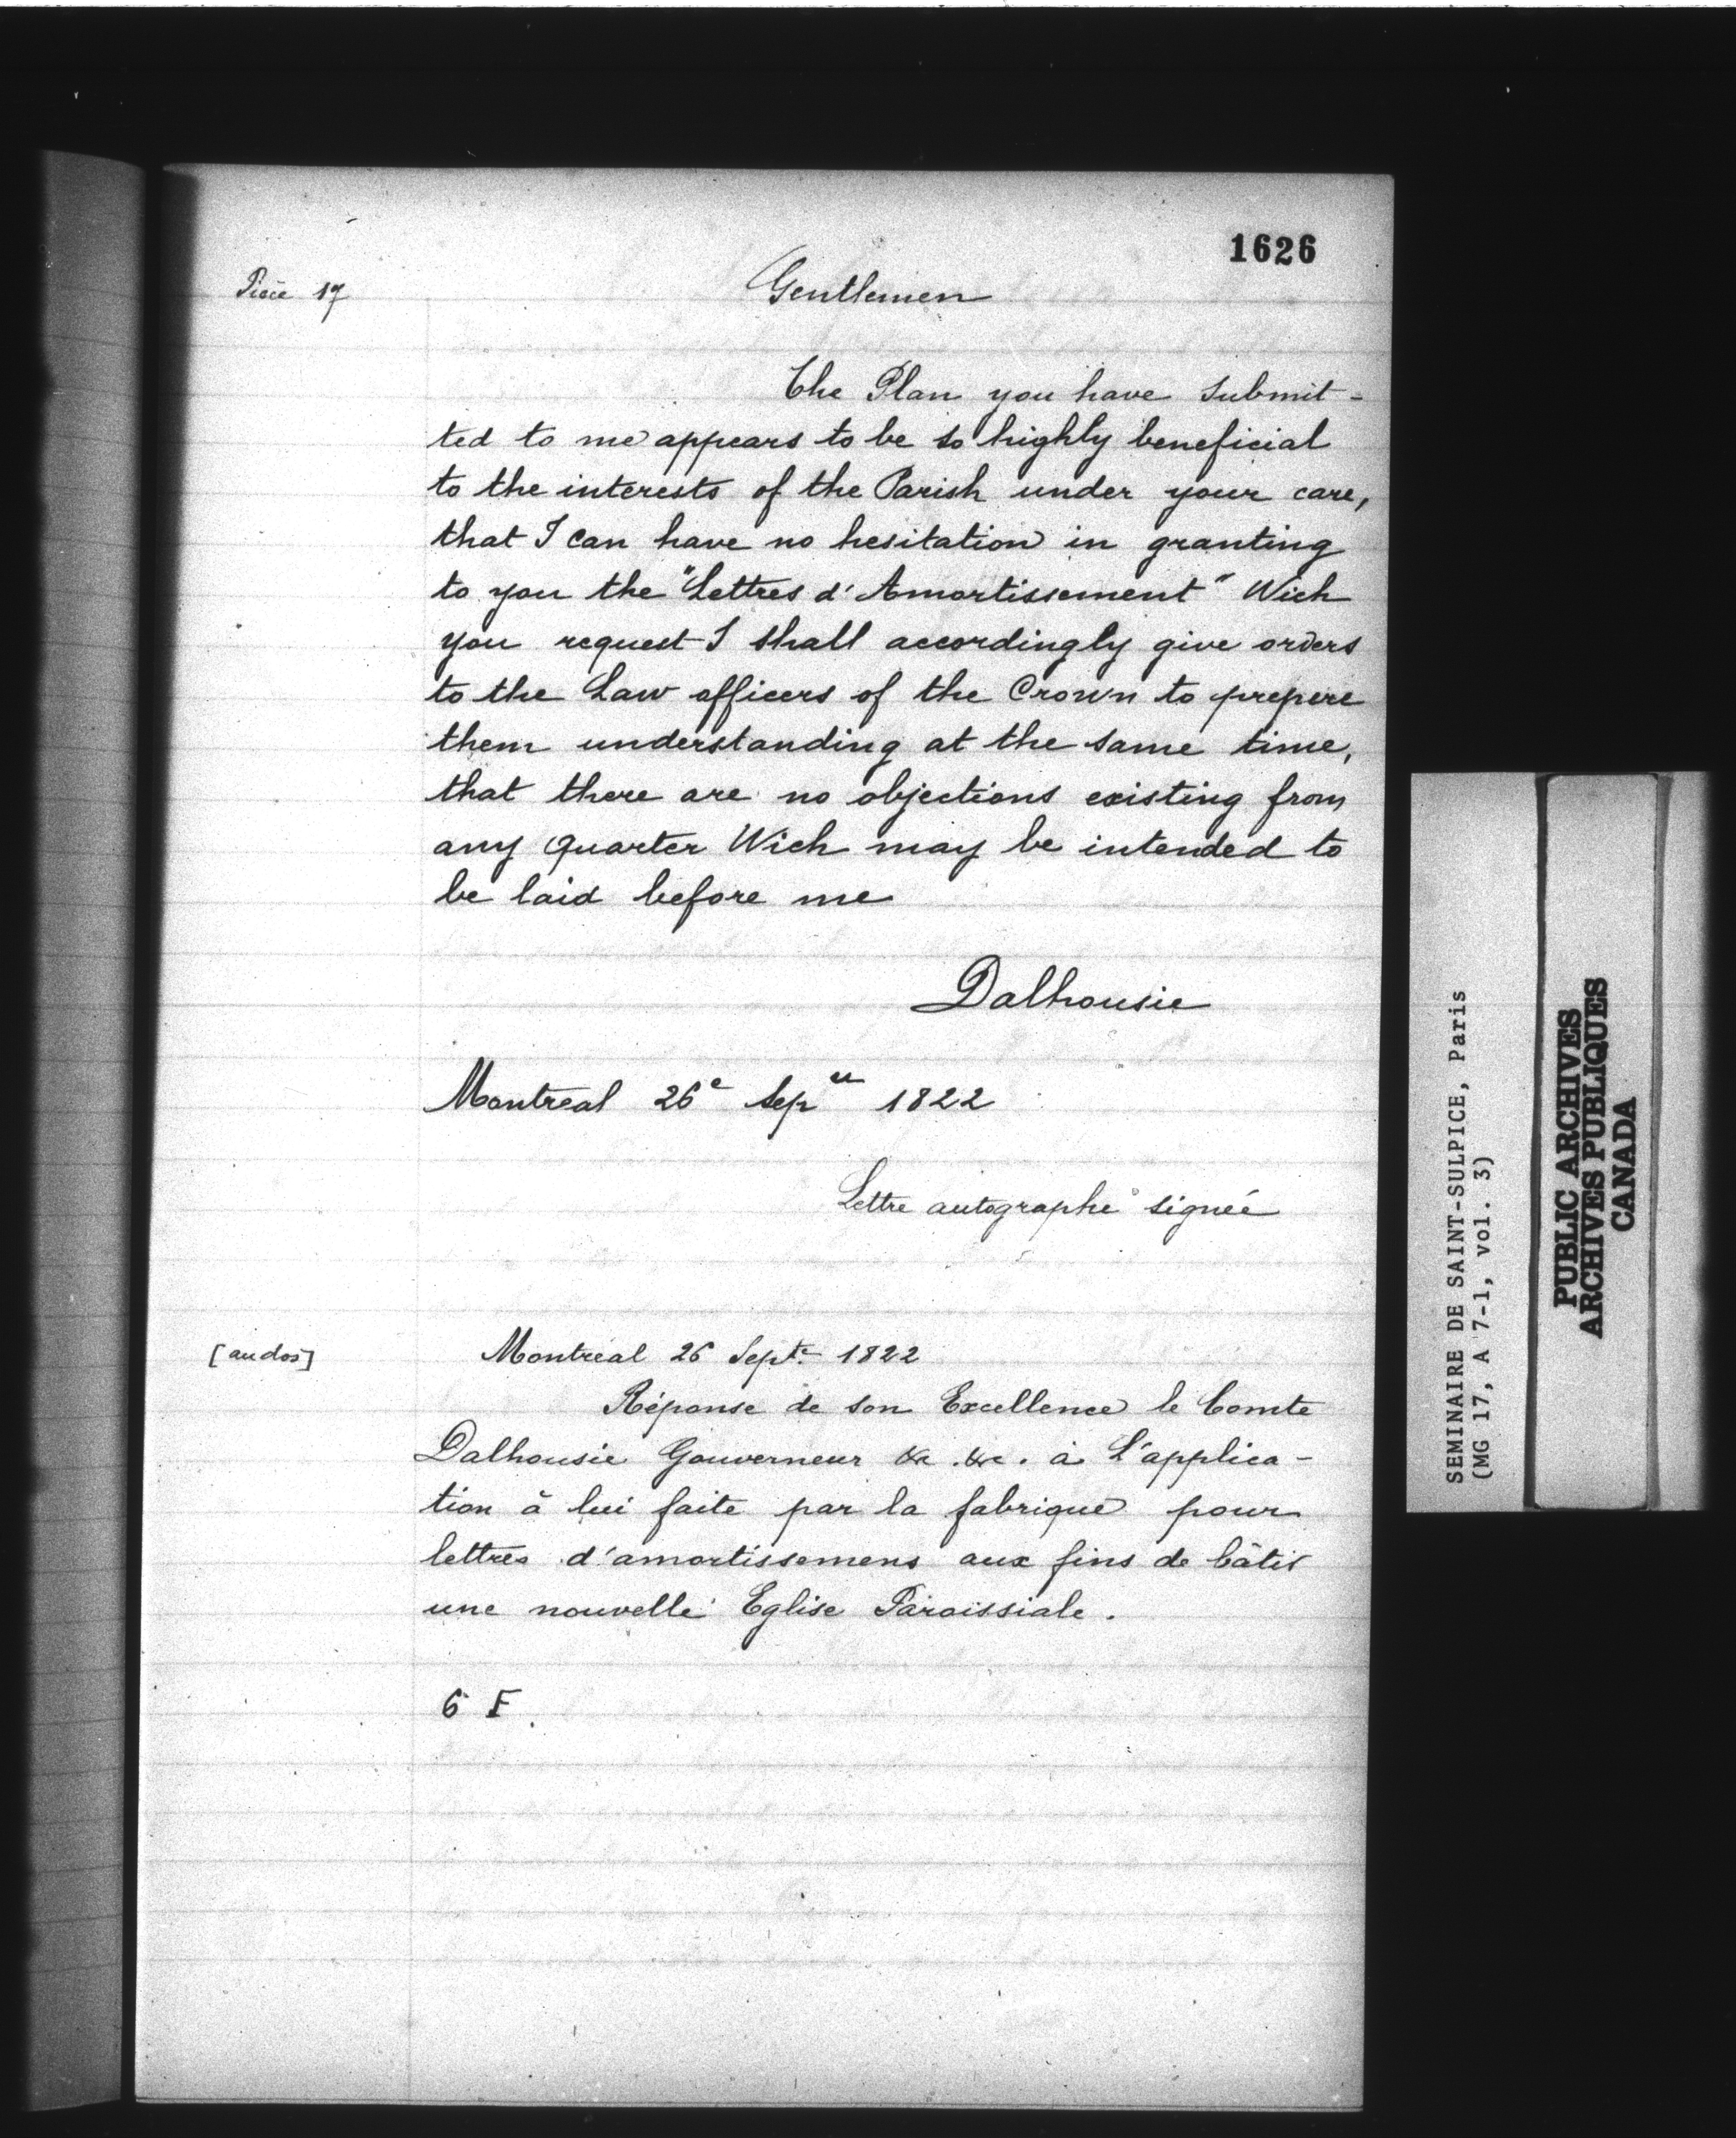 1626
Pièce 17
Gentlemen
The Plan you have submit-
ted to me appears to be so highly beneficial
to the interests of the Parish under your care,
that I can have no hesitation in granting
to you the "Lettres d'Amortissement" Wich
you request I shall accordingly give orders
to the Law officers of the Crown to prepere
them understanding at the same time,
that there are no objections existing from
any quarter Wich may be intended to
be laid before me
Dalhousie
Montreal 26e Sep 1822
Lettre autographe signée
[au dos]
Montréal 26 Septe 1822
Réponse de son Excellence le Comte
Dalhousie Gouverneur &c . &c . à L'applica-
tion à lui faite par la fabrique pour
lettres d'amortissemens aux fins de bâtir
une nouvelle Eglise Paroissiale.
6 F.
SEMINAIRE DE SAINT-SULPICE, Paris
(MG 17, A 7-1, vol. 3)
PUBLIC ARCHIVES
ARCHIVES PUBLIQUES
CANADA